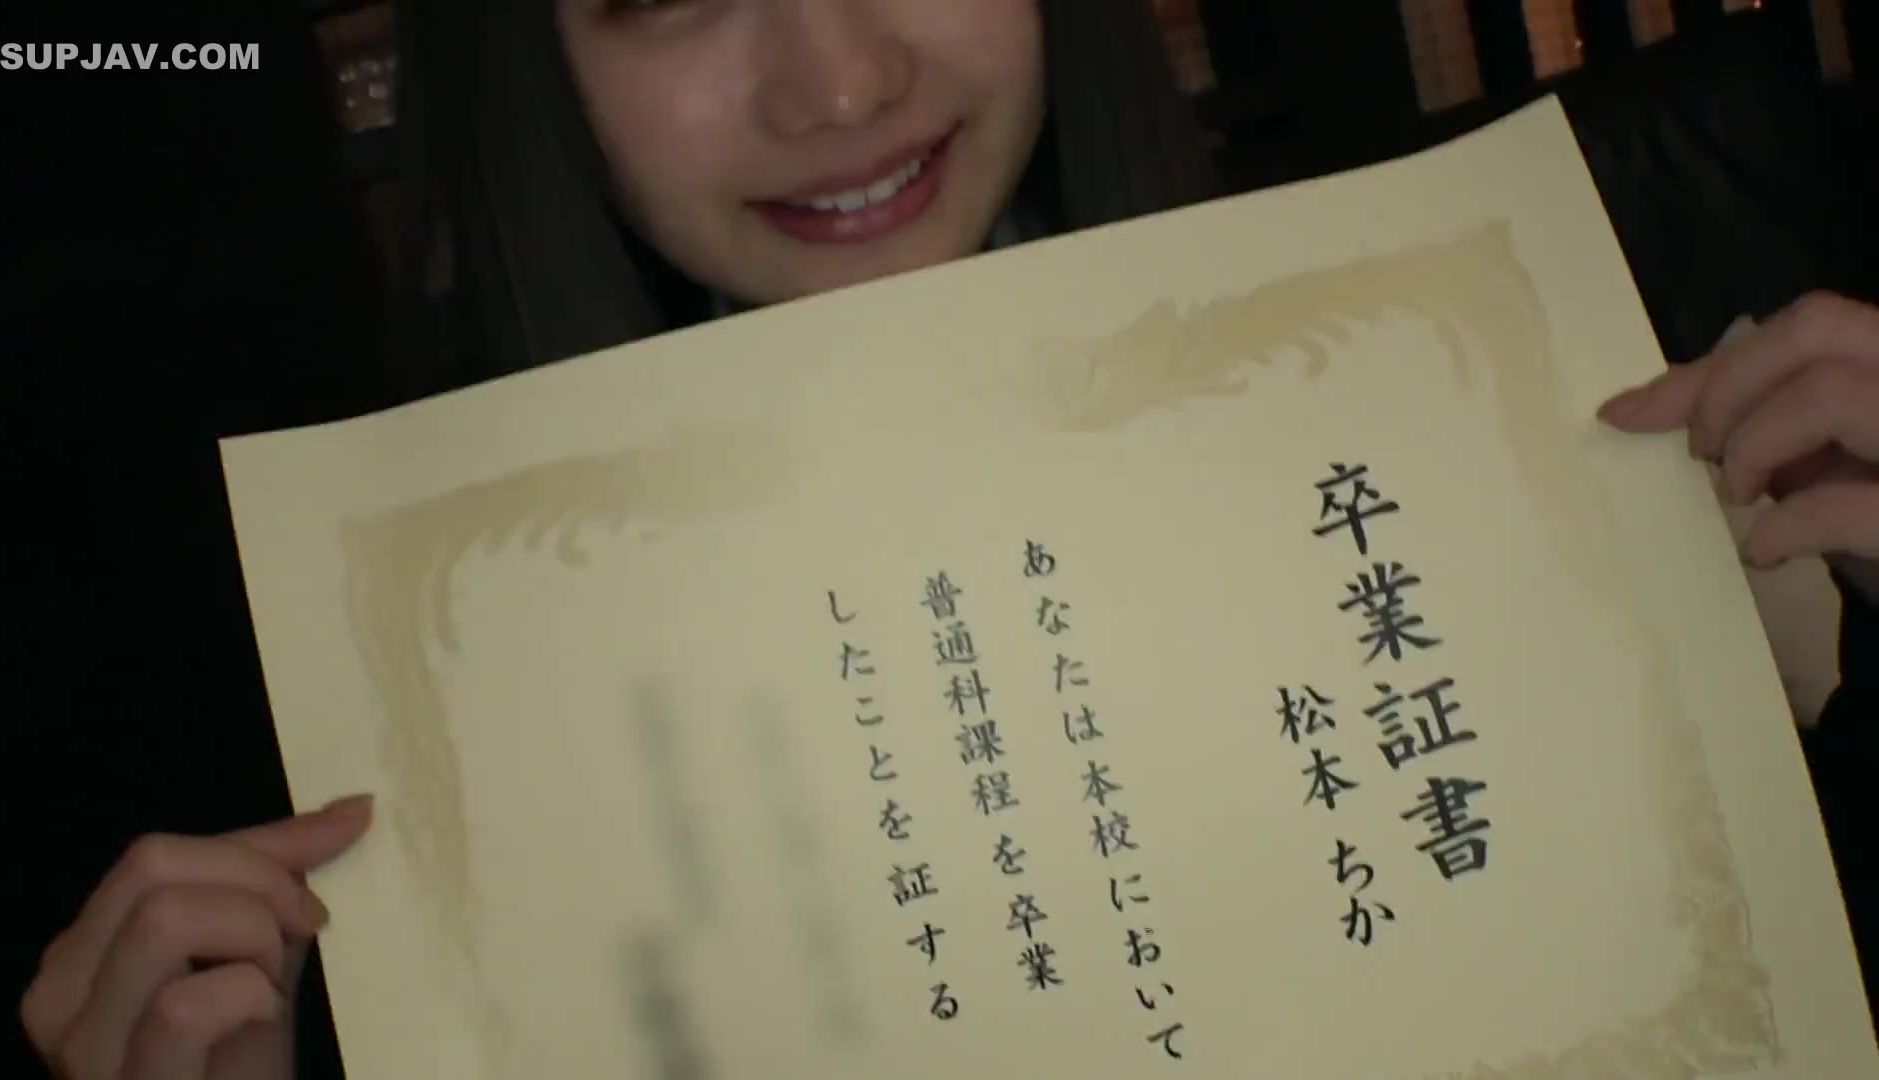 SUPJAV.COM
卒業証書
松本 ちか
あなたは本校において
普通科課程を卒業
したことを証する